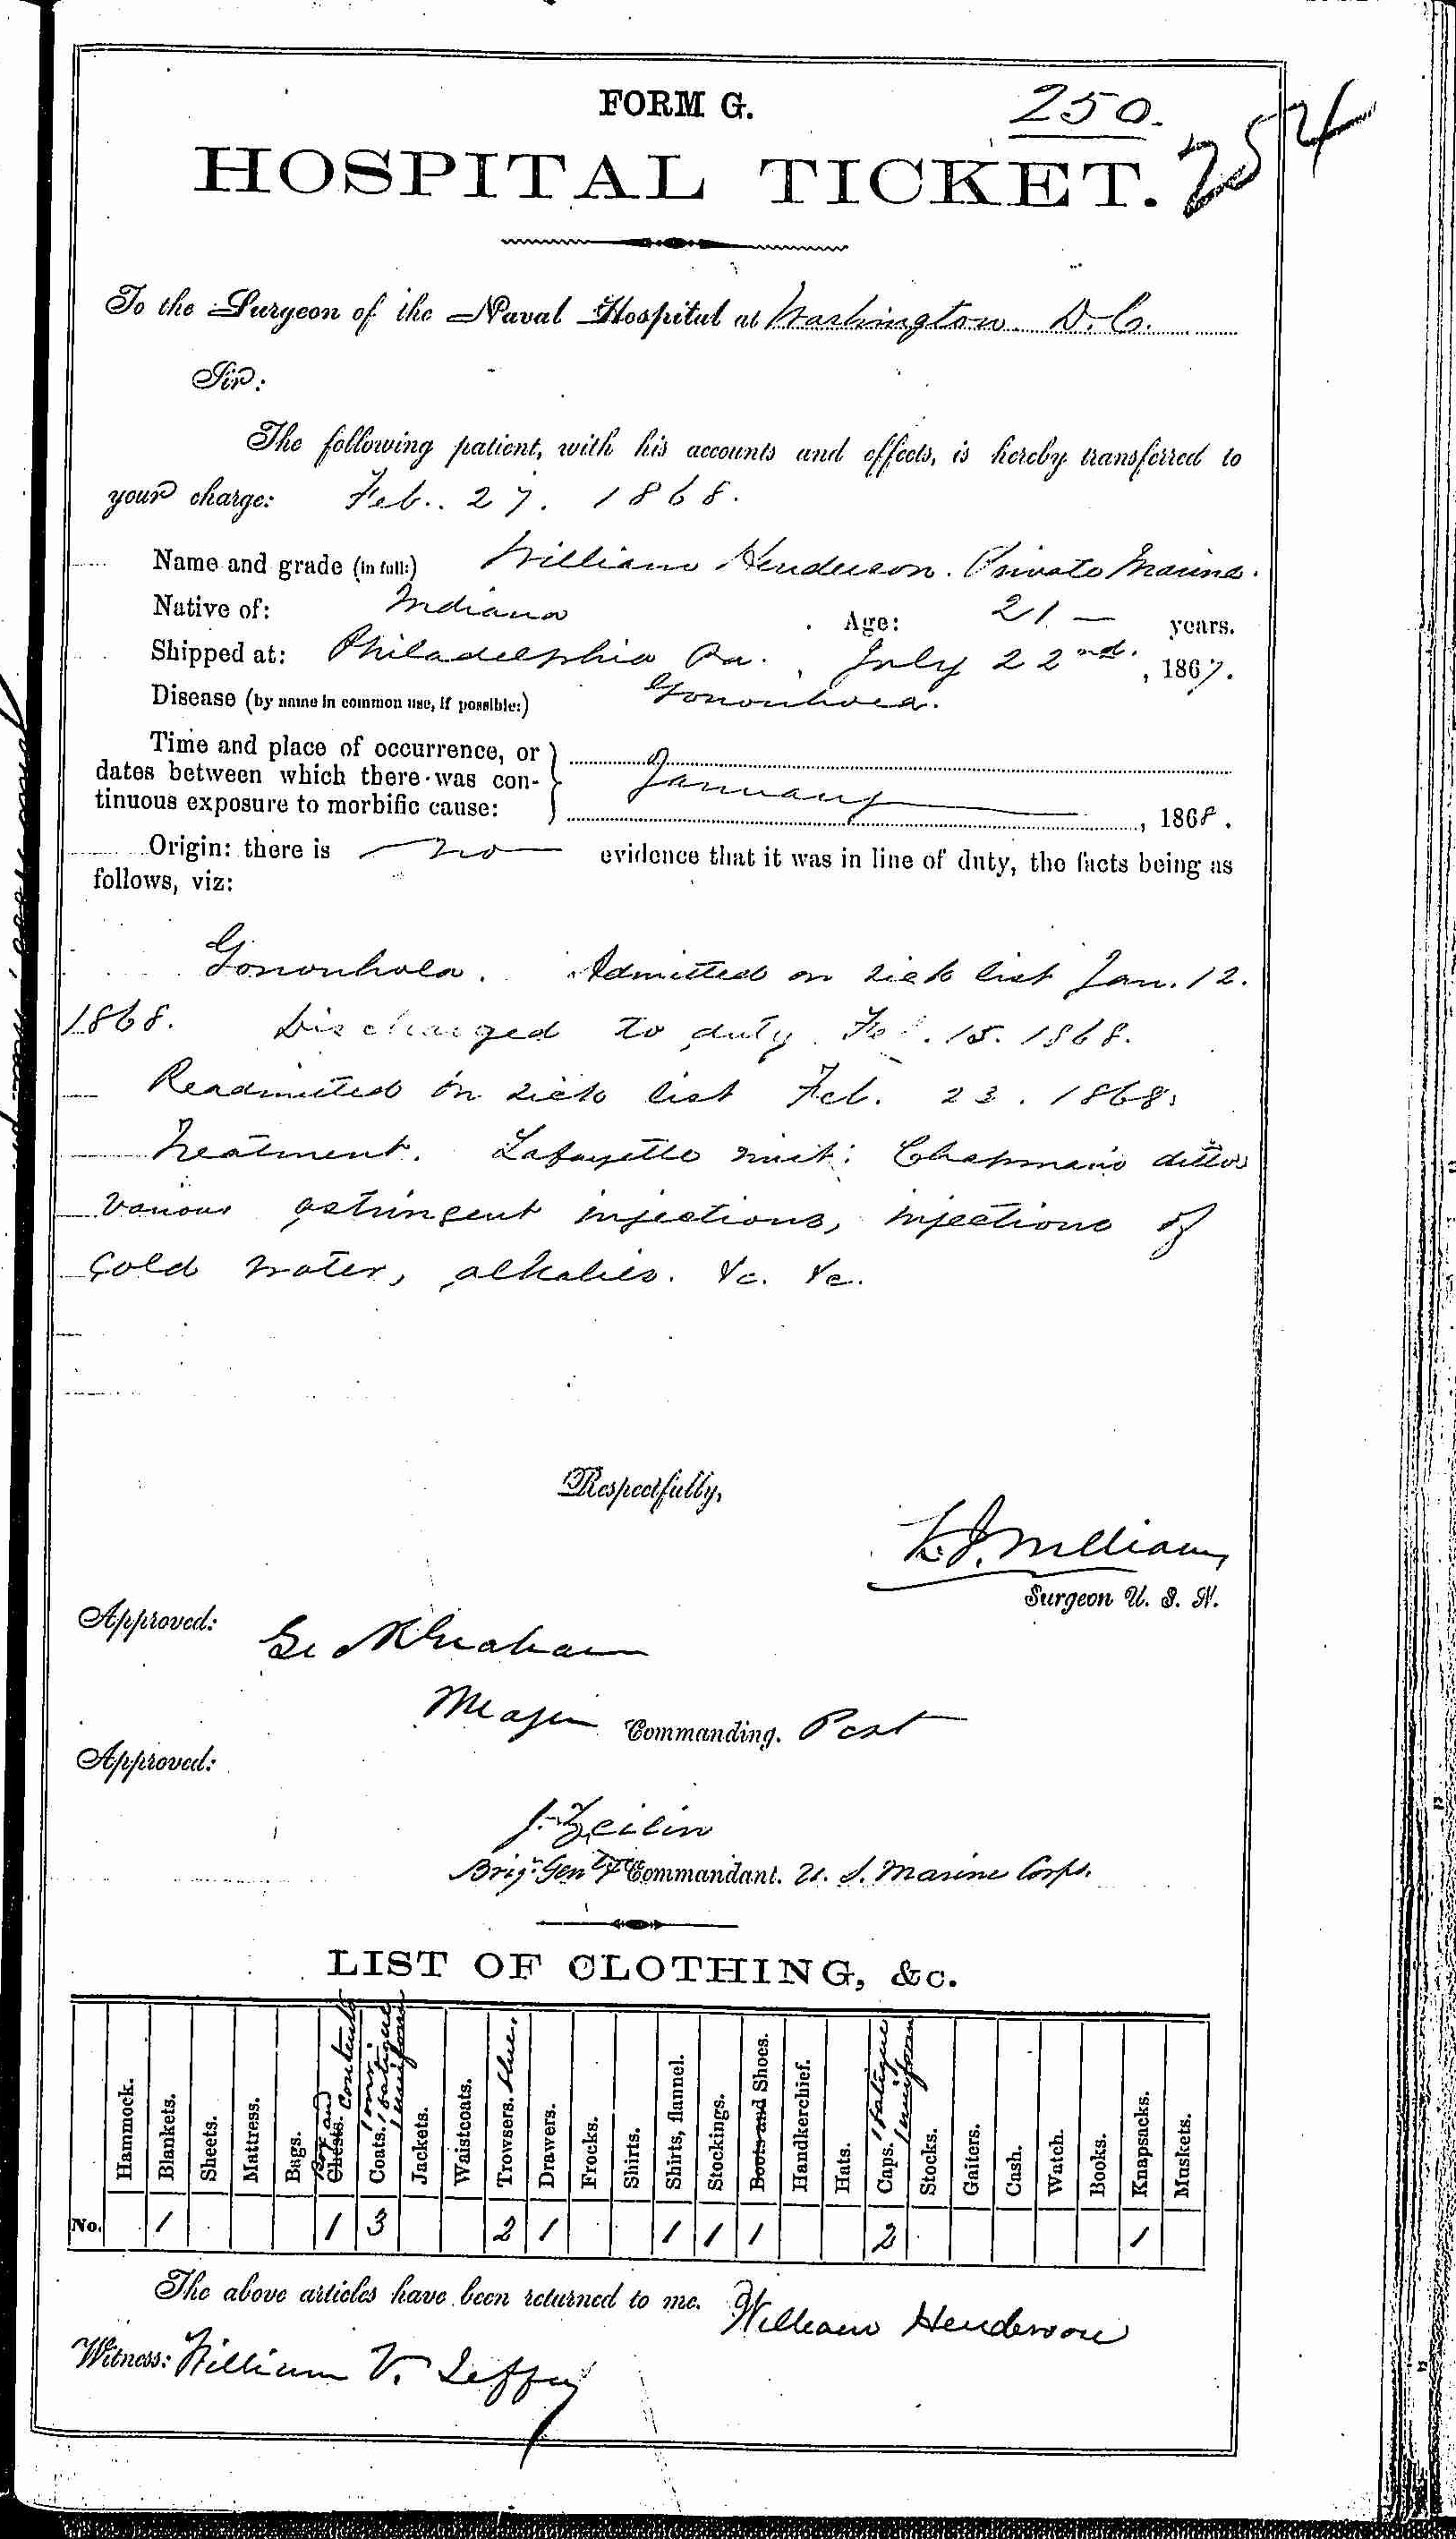 FORM G.
250.
254
HOSPITAL TICKET.
To the Surgeon of the Naval Hospital at Washington. D. C.
Sir:
The following patient, with his accounts and effects, is hereby transferred to
your charge: Feb. 27. 1868.
Name and grade (in full:) William Henderson. Private Marine.
Native of: Indiana Age: 21 — years.
Shipped at: Philadelphia Pa., July 22nd., 1867.
Disease (by name in common use, if possible:) Gonorrhoea.
Time and place of occurrence, or
dates between which there was con-
tinuous exposure to morbific cause: January, 1868.
Origin: there is no evidence that it was in line of duty, the facts being as
follows, viz:
Gonorrhoea. Admitted on sick list Jan. 12.
1868. Discharged to duty Feb. 15. 1868.
Readmitted on sick list Feb. 23. 1868.
Treatment. Lafayette mixt: Chapman's ditto
various astringent injections, injections of
cold water, alkalies. &c. &c.
Respectfully,
Surgeon U. S. N.
Approved: Geo R Graham
Major Commanding. Post
Approved:
J. Zeilin
Brig. Genl & Commandant. U. S. Marine Corps.
LIST OF CLOTHING, &c.
Hammock. Blankets. Sheets. Mattress. Bags. Box and Chests. contents Coats. 1 fatigue 1 uniform Jackets. Waistcoats. Trowsers. blue. Drawers. Frocks. Shirts. Shirts, flannel. Stockings. Boots and Shoes. Handkerchief. Hats. Caps. 1 fatigue 1 uniform Stocks. Gaiters. Cash. Watch. Books. Knapsacks. Muskets.
No. 1 1 3 2 1 1 1 1 2 1
The above articles have been returned to me. William Henderson
Witness: William V.